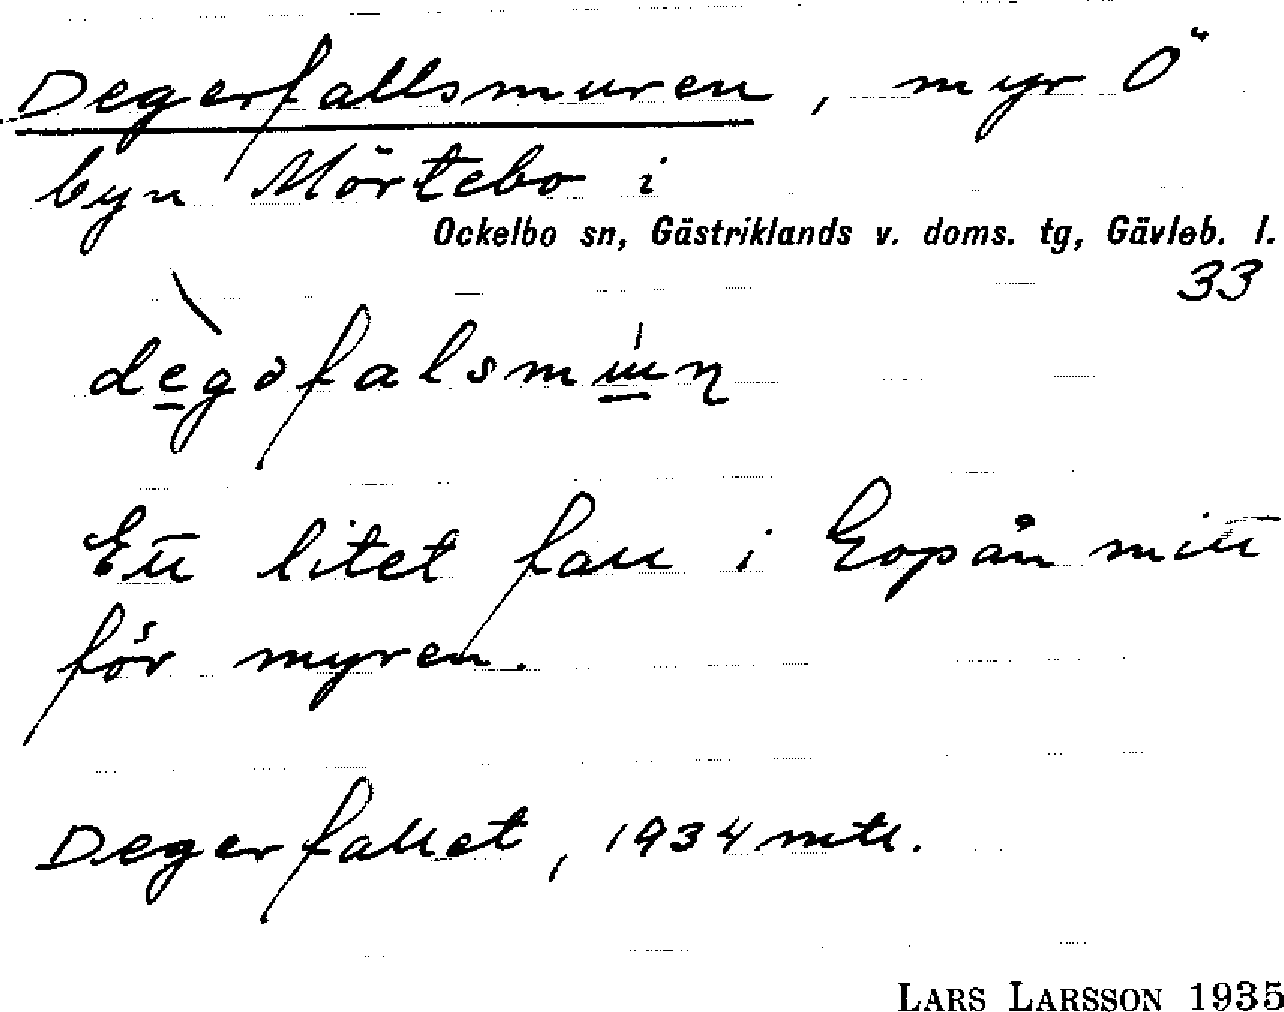 Degerfallsmuren, myr Ö
byn Mörtebo i
Ockelbo sn, Gästriklands v. doms. tg, Gävleb. l.
33
Ett litet fall i Kopån mitt
för myren.
Degerfallet, 1934 mtl.
LARS LARSSON 1935